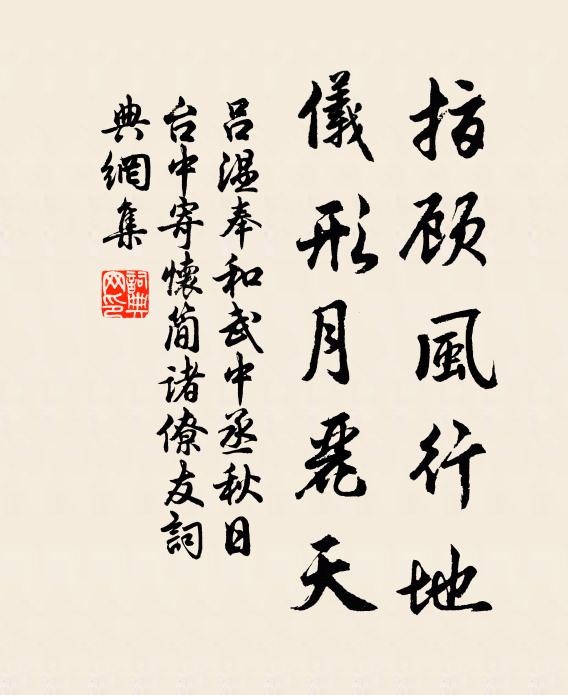 指顾風行地
儀形月麗天
呂温奉和武中丞秋日
台中寄懷簡諸僚友詞
典網集
詞典網印